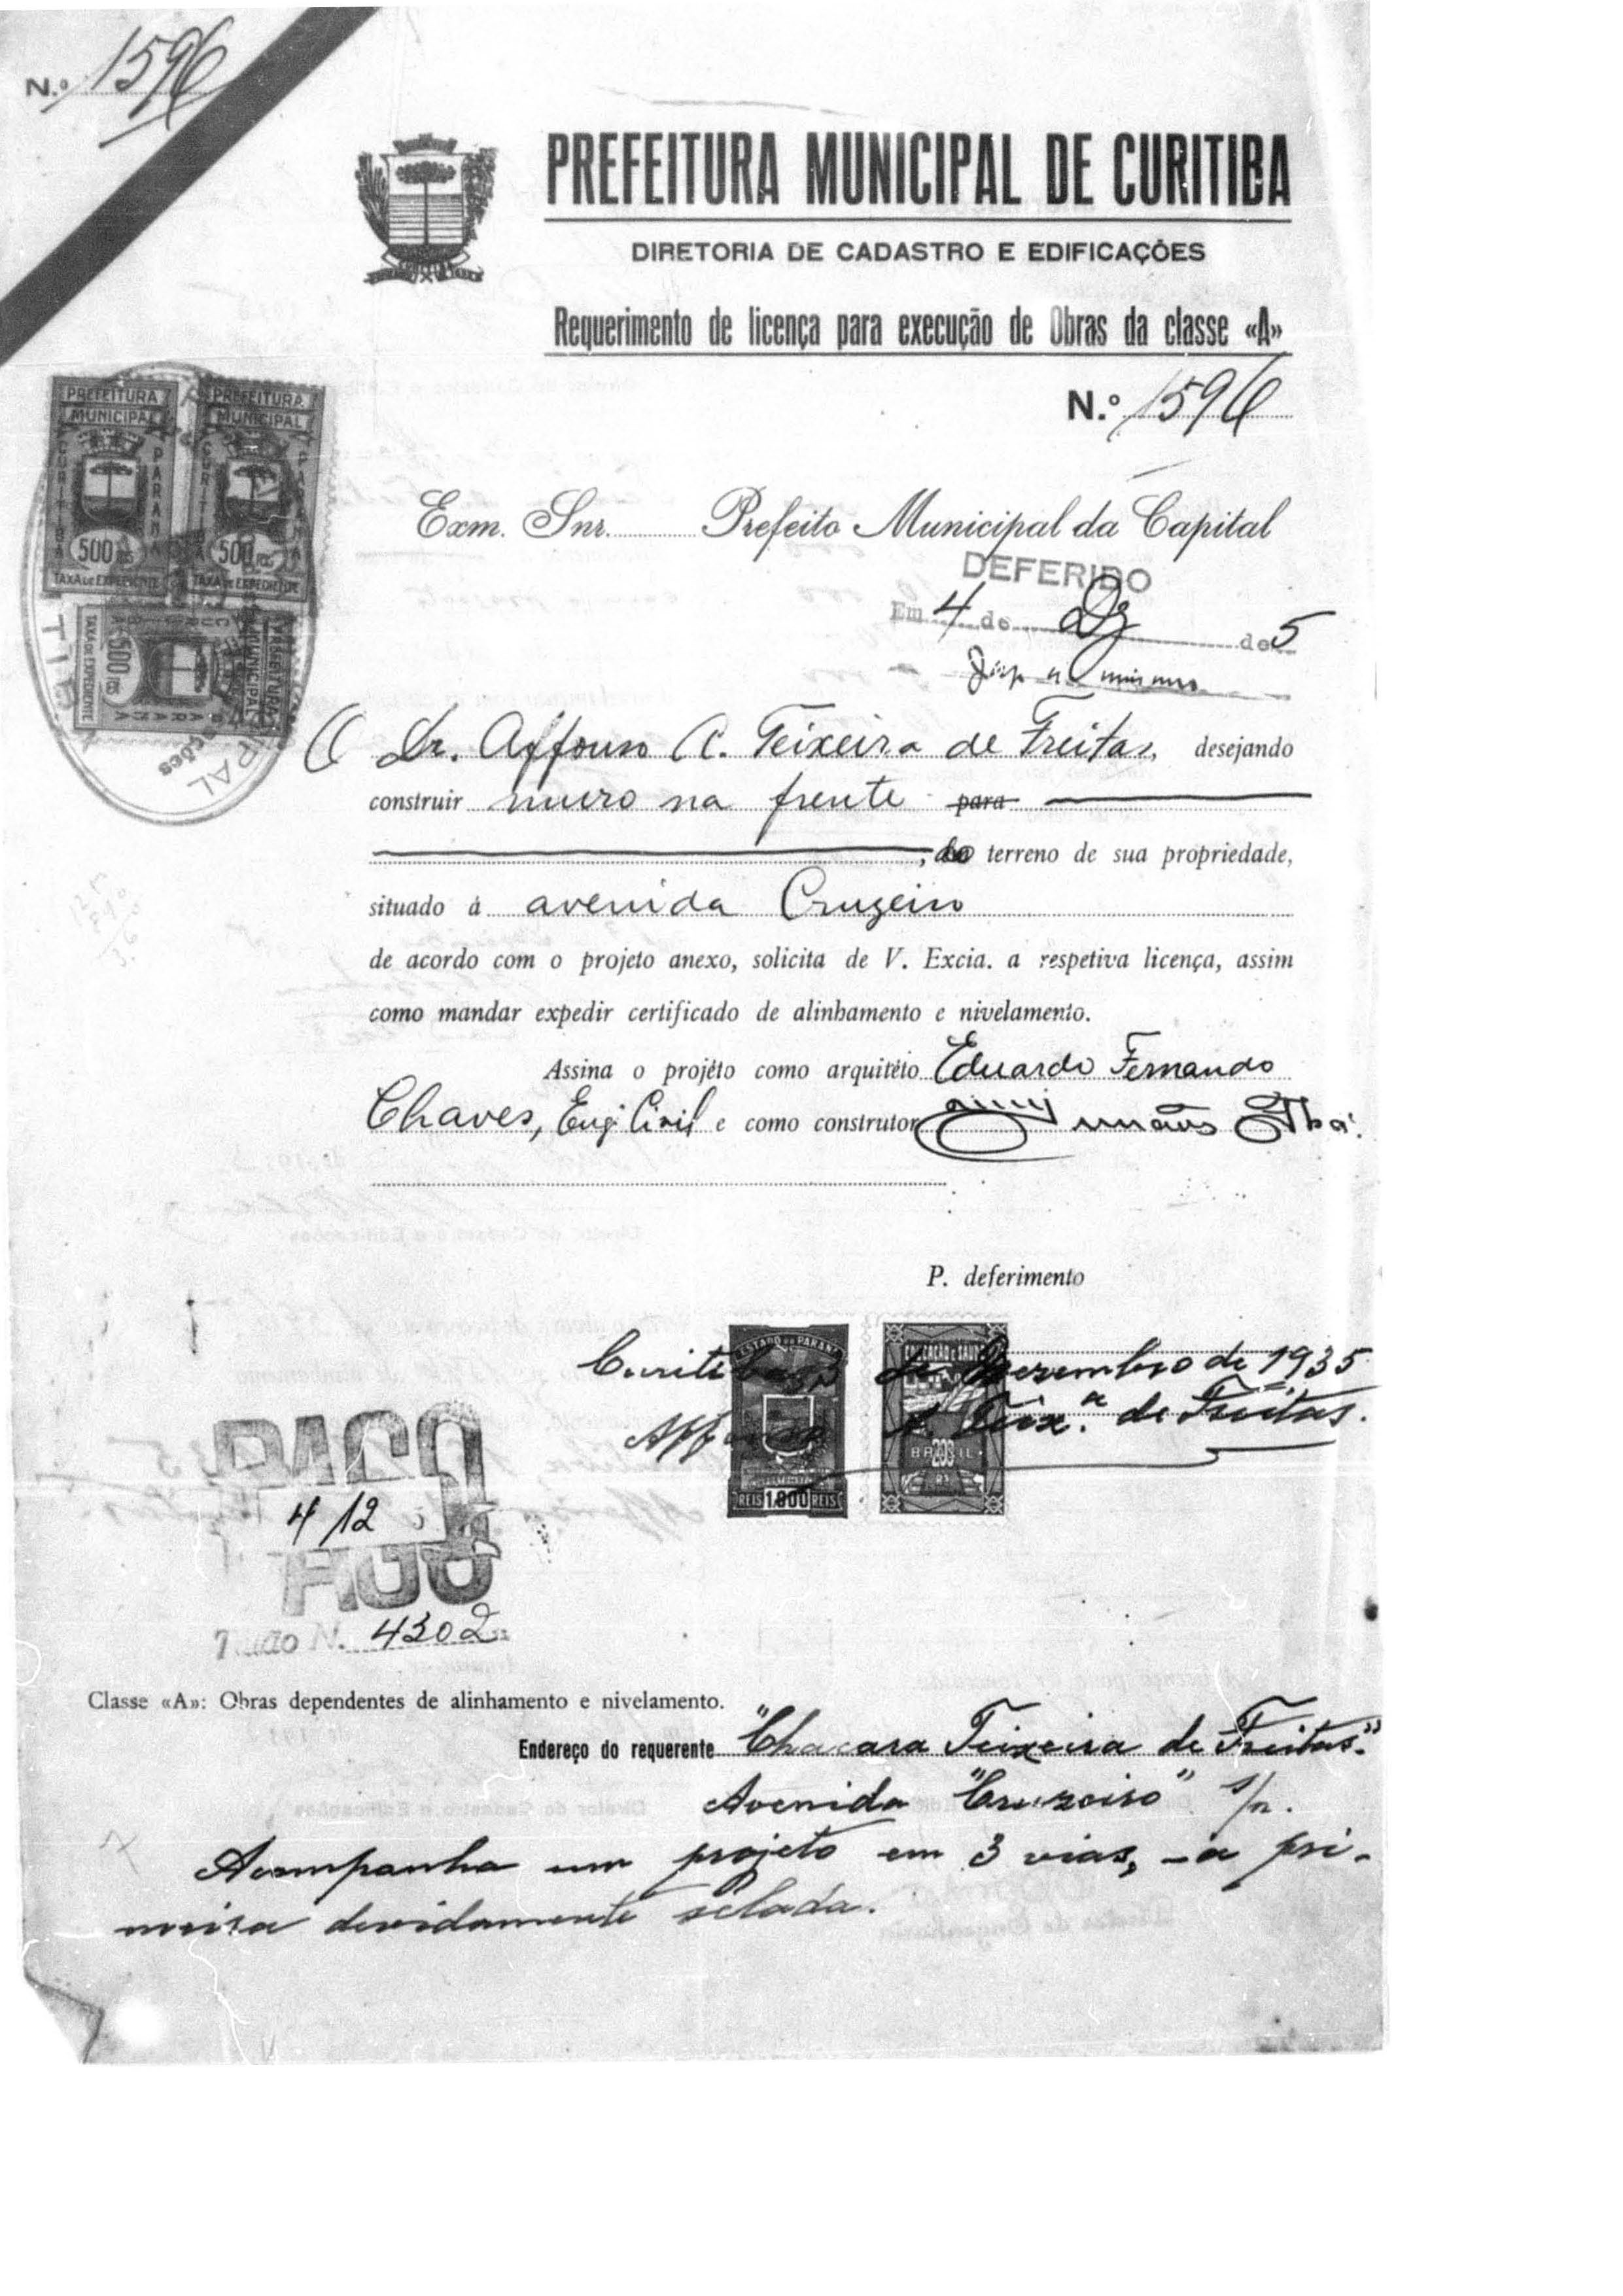 N.º 1596
PREFEITURA MUNICIPAL DE CURITIBA
DIRETORIA DE CADASTRO E EDIFICAÇÕES
Requerimento de licença para execução de Obras da classe «A»
N.º 1596
PREFEITURA MUNICIPAL
CURITIBA PARANÁ
500 RS
TAXA DE EXPEDIENTE
PREFEITURA MUNICIPAL
CURITIBA PARANÁ
500 RS
TAXA DE EXPEDIENTE
PREFEITURA MUNICIPAL
CURITIBA PARANÁ
500 RS
TAXA DE EXPEDIENTE
Exm. Snr. Prefeito Municipal da Capital
DEFERIDO
Em 4 de Dz de 5
O Dr. Affonso A. Teixeira de Freitas, desejando
construir muro na frente para
, do terreno de sua propriedade,
situado á avenida Cruzeiro
de acordo com o projeto anexo, solicita de V. Excia. a respetiva licença, assim
como mandar expedir certificado de alinhamento e nivelamento.
Assina o projéto como arquitéto Eduardo Fernando
Chaves, Eng. Civil e como construtor Irmãos Thá.
P. deferimento
Curitiba, 3 de Dezembro de 1935
Affonso A. Teix.ª de Freitas.
ESTADO DO PARANÁ
REIS 1.000 REIS
EDUCAÇÃO E SAUDE
BRASIL
200 RS
PAGO
4/12
PAGO
Talão N. 4302
Classe «A»: Obras dependentes de alinhamento e nivelamento.
Endereço do requerente "Chacara Teixeira de Freitas."
Avenida "Cruzeiro" s/n.
Acompanha um projeto em 3 vias, -a pri-
meira devidamente selada.